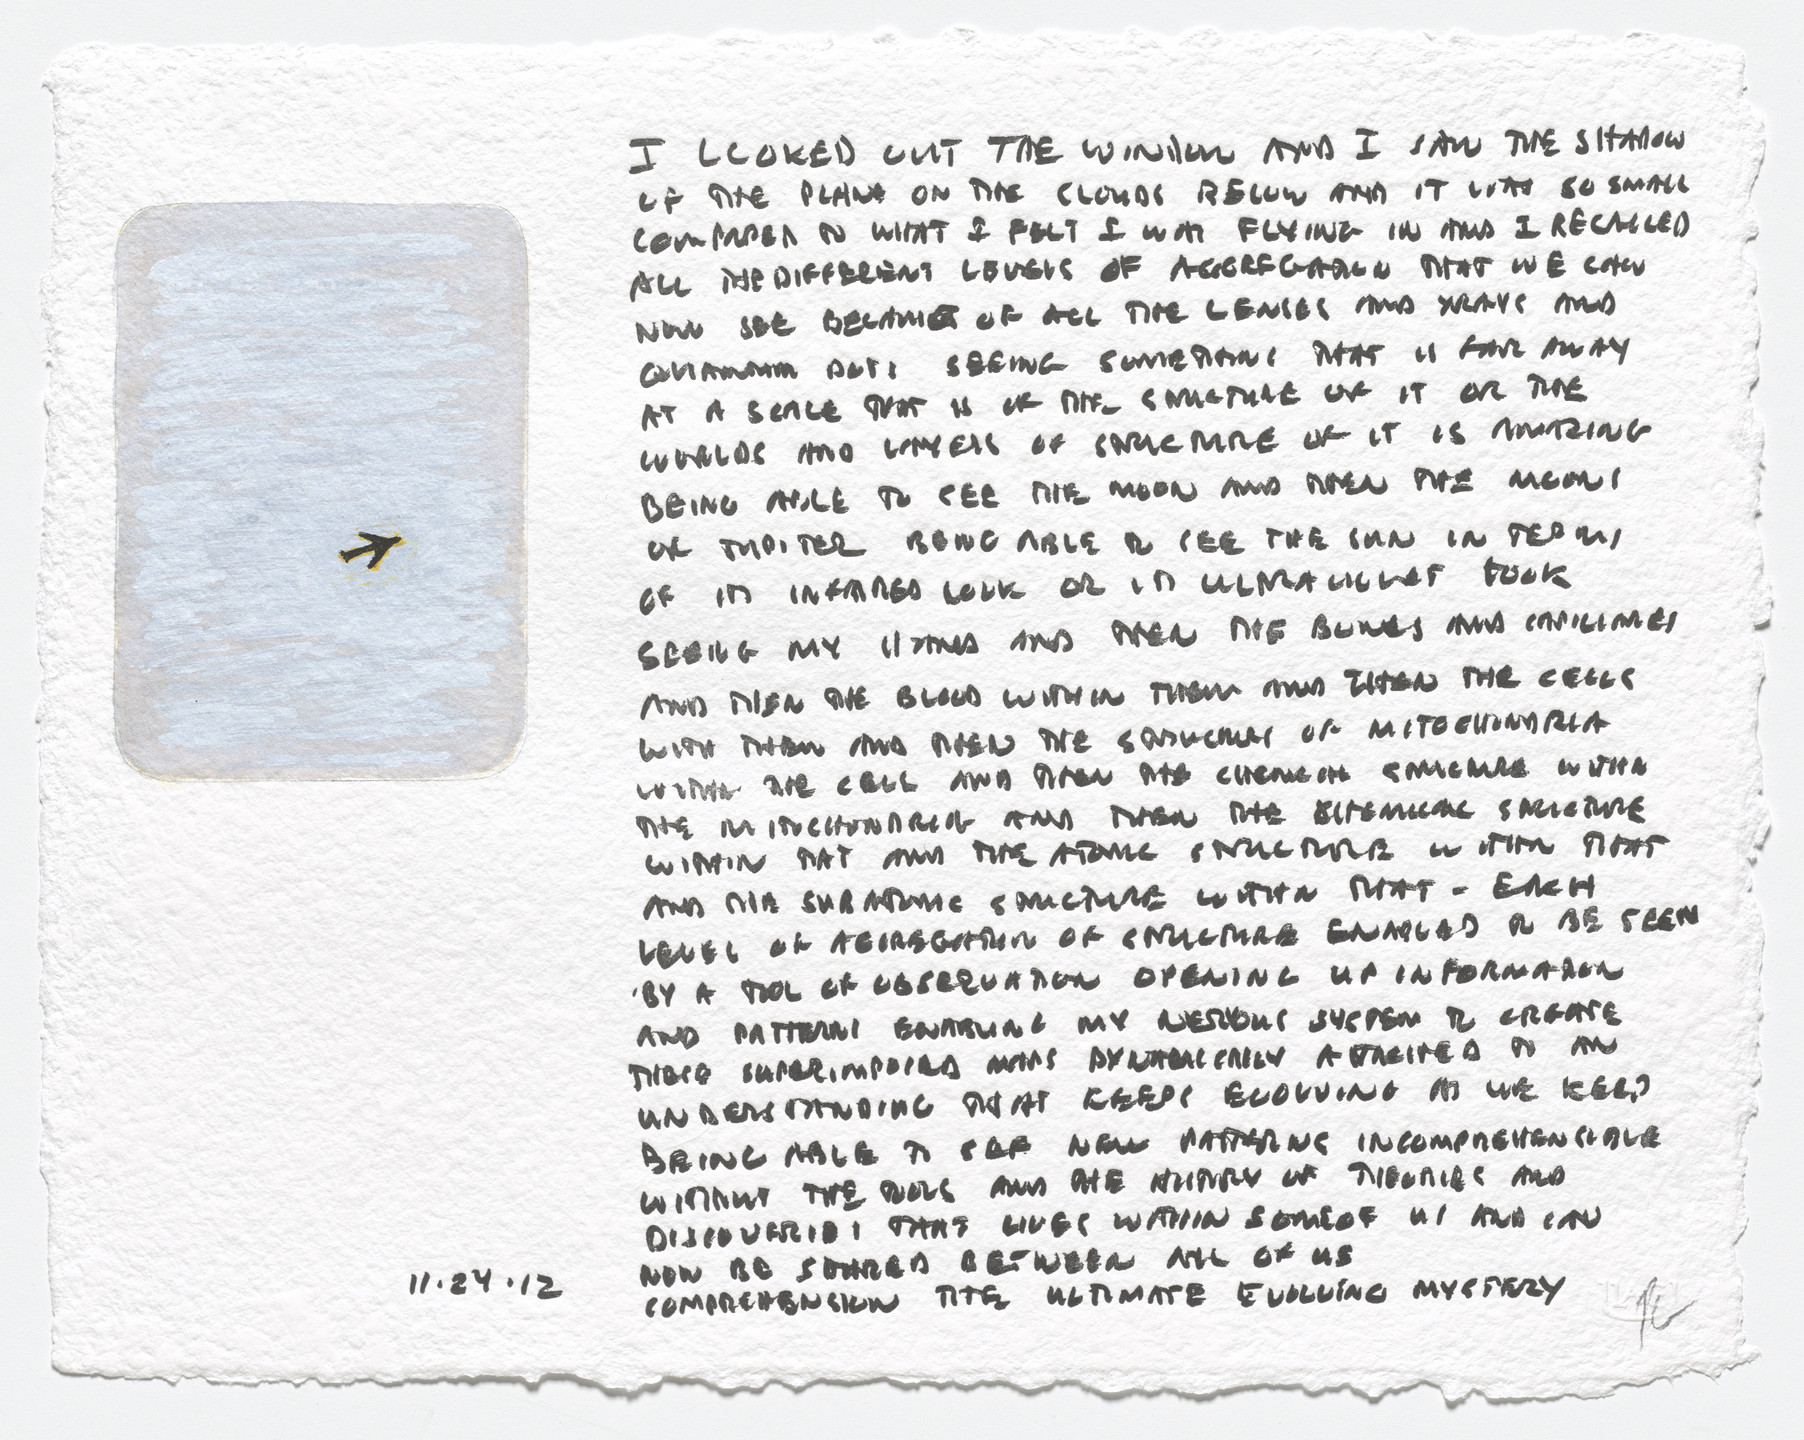 I LOOKED OUT THE WINDOW AND I SAW THE SHADOW
OF THE PLANE ON THE CLOUDS BELOW AND IT WAS SO SMALL
COMPARED TO WHAT I FELT I WAS FLYING IN AND I RECALLED
ALL THE DIFFERENT LEVELS OF AGGREGATION THAT WE CAN
NOW SEE BECAUSE OF ALL THE LENSES AND XRAYS AND
QUANTUM DOTS SEEING SOMETHING THAT IS FAR AWAY
AT A SCALE THAT IS OF THE STRUCTURE OF IT OR THE
WORLDS AND LAYERS OF STRUCTURE OF IT IS AMAZING
BEING ABLE TO SEE THE MOON AND THEN THE MOONS
OF JUPITER BEING ABLE TO SEE THE SUN IN TERMS
OF ITS INFRARED LOOK OR ITS ULTRAVIOLET LOOK
SEEING MY HAND AND THEN THE BONES AND CAPILLARIES
AND THEN THE BLOOD WITHIN THEM AND THEN THE CELLS
WITH THEM AND THEN THE STRUCTURES OF MITOCHONDRIA
WITHIN THE CELL AND THEN THE CHEMICAL STRUCTURE WITHIN
THE MITOCHONDRIA AND THEN THE STRUCTURE
WITHIN THAT AND THE ATOMIC STRUCTURE WITHIN THAT
AND THE SUBATOMIC STRUCTURE WITHIN THAT - EACH
LEVEL OF AGGREGATION OF STRUCTURE ENABLED TO BE SEEN
BY A TOOL OF OBSERVATION OPENING UP INFORMATION
AND PATTERNS ENABLING MY NERVOUS SYSTEM TO CREATE
THESE SUPERIMPOSED MAPS DYNAMICALLY ATTACHED TO AN
UNDERSTANDING THAT KEEPS EVOLVING AS WE KEEP
BEING ABLE TO SEE NEW PATTERNS INCOMPREHENSIBLE
WITHOUT THE TOOLS AND THE HISTORY OF THEORIES AND
DISCOVERIES THAT LIVES WITHIN SOME OF US AND CAN
NOW BE SHARED BETWEEN ALL OF US
COMPREHENSION THE ULTIMATE EVOLVING MYSTERY
11.24.12